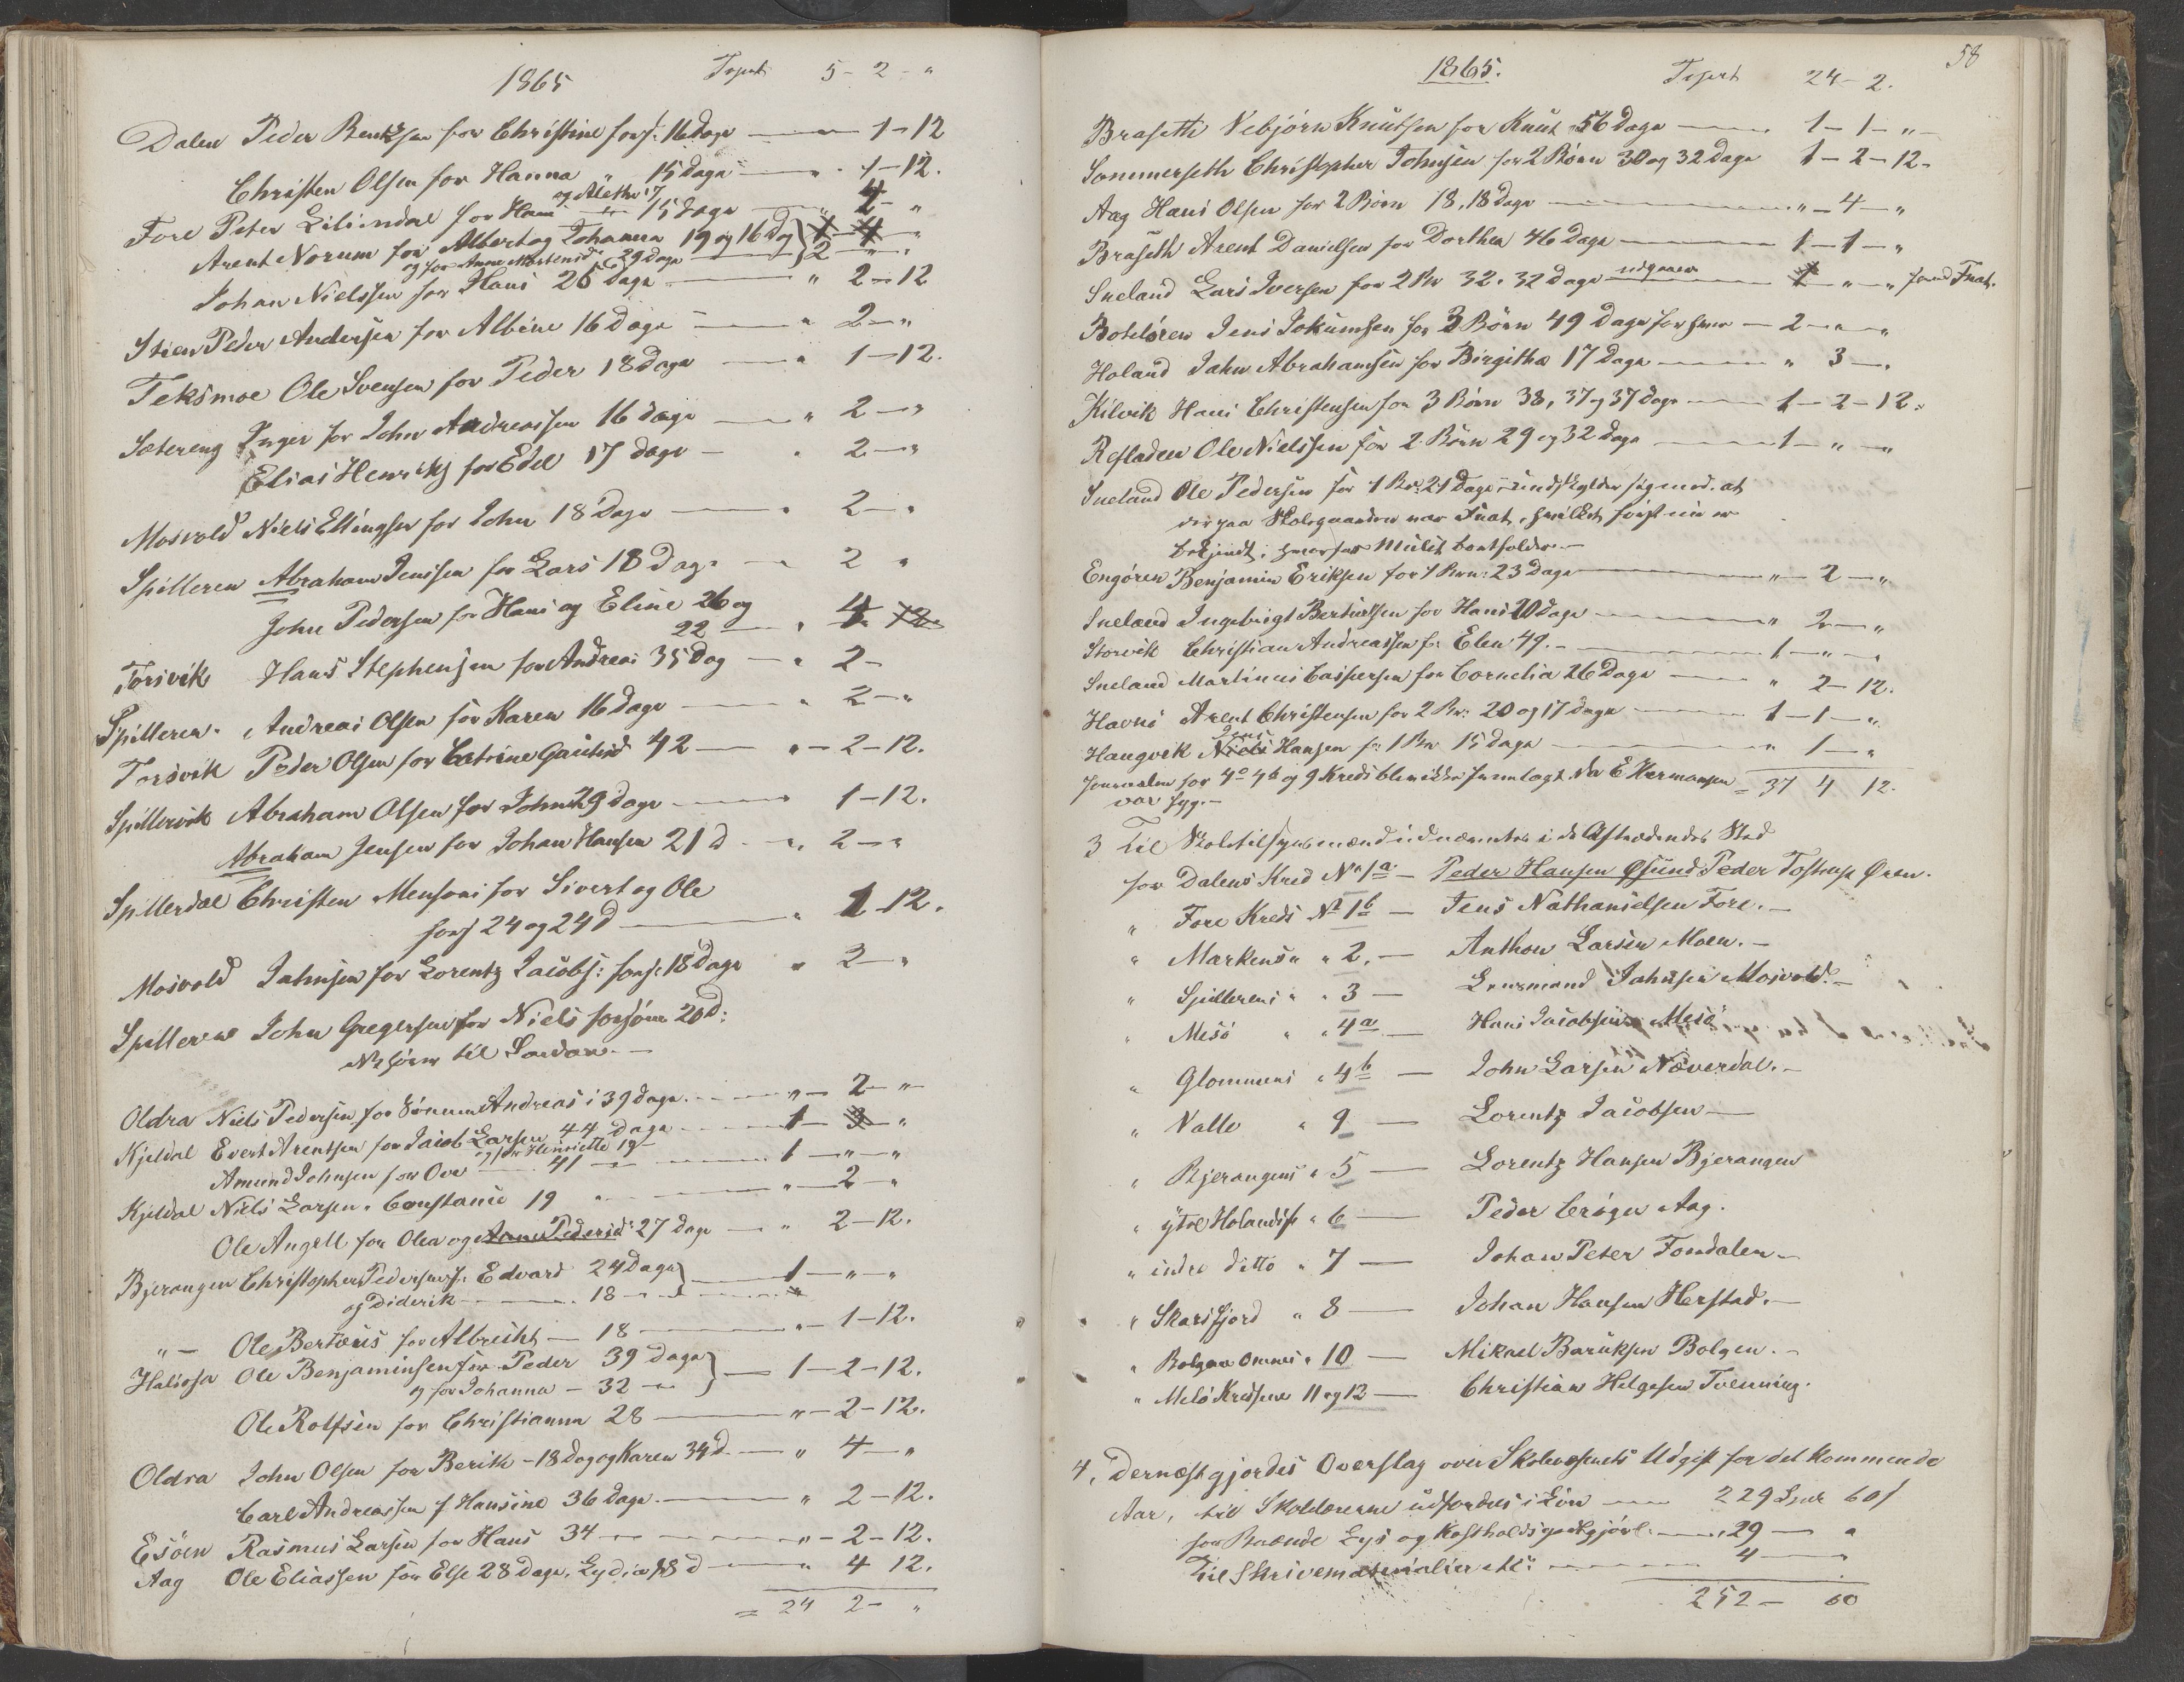 1865 Trpt 5 - 2 - "
Dalen Peder Bentzsen for Christine fors: 16 Dage — 1-12
Christen Olsen for Hanna " 15 Dage — " 1-12.
og Alethe 17
Fore Peter Liliendal for Hans — 15 dage — " 4 - "
Arent Norum for Albert og Johanna 19 og 16 Dg
og for Anne Mortensd: 29 dage — 2 " "
Johan Nielssen for Hans 26 Dage — " 2-12
Stien Peder Andersen for Albine 16 Dage — " 2 - "
Teksmoe Ole Svensen for Peder 18 Dage — " 1-12.
Setereng Inger for John Andreassen 16 dage — " 2 - "
Elias Henriks for Edel 17 dage — " 2 - "
Mosvold Niels Ellingsen for John 18 Dage — " 2 - "
Spilleren Abraham Jenssen for Lars 18 Dage — " 2 "
John Pedersen for Hans og Eline 26 og
22 — " 4
Torsvik Hans Stephensen for Andreas 35 Dag — " 2 -
Spilleren " Andreas Olsen for Karen 16 Dage — " 2 - "
Torsvik Peder Olsen for Catrine Gautsd 42 — " - 2-12.
Spillervik Abraham Olsen for John 29 dage — 1-12.
Abraham Jensen for Johan Hansen 21 d — " 2 - "
Spillerdal Christen Monsoni for Sivert og Ole
fors 24 og 24 d — " 1 12.
Mosvold Jahnsen for Lorentz Jacobs: fors: 18 dage " 2 - "
Spilleren John Gregersen for Niels forsömt 20 d:
til Sandan. —
Oldra Niels Pedersen for Sönnen Andreas i 39 dage — " - 2 - "
Kjeldal Evert Arentsen for Jacob Larsen 44 Dage — 1 - 3 - "
og for Henriette 19 -
Amund Johnsen for Ove — 41 — 1 - " - "
Kjeldal Niels Larsen " Constance 19 " — " - 2 - "
Ole Angell for Olea og Anne Pedersd: 27 Dage — " 2-12.
Bjerangen Christopher Pedersen f: Edvard 24 Dage — 1 - " - "
og Diderik — 18 —
" — Ole Berteus for Albrecht — 18 — " - 1-12.
Halsosa Ole Benjaminsen for Peder 39 Dage — 1-2-12.
og for Johanna - 32 —
Ole Rolfsen for Christianna 28 — " - 2-12.
Oldra John Olsen for Berith - 18 Dag og Karen 34 d — " 4 - "
Carl Andreassen f Hansine 36 dage — " 2-12.
Esöen Rasmus Larsen for Hans 34 — " - 2-12.
Aag Ole Eliassen for Else 28 Dage, Lydia 18 d — " 4 12.
= 24 2 - "
58
1865. Trsprt 24 - 2.
Braseth Nebjörn Knutsen for Knut 56 Dage — 1 - 1 - " -
Sommerseth Christopher Johnsen for 2 Börn 30 og 32 Dage 1 - 2 - 12.
Aag Hans Olsen for 2 Börn 18, 18 Dage — " - 4 - "
Braseth Arent Danielsen for Dorthea 46 Dage — 1 - 1 - "
Sneland Lars Iversen for 2 Br 32. 32 Dage udgaaer 1 - " - " Fnat.
Botelören Jens Jokumsen for 3 Börn 49 Dage for hver — 2 - " - "
Holand Jahn Abrahamsen for Birgitha 17 Dage — " 3 - "
Kilvik Hans Christensen for 3 Börn 38, 37 og 37 dage — 1 - 2 - 12.
Resladen Ole Nielssen for 2 Börn 29 og 32 dage — 1 - " - "
Sneland Ole Pedersen for 1 Br: 21 Dage, undskylder sig med. at
der paa Skolegaarden var Fnat, hvilket först nu er
bekjendt, hvorfor Mulct bortfalder. —
Engören Benjamin Eriksen for 1 Brn: 23 Dage — " - 2 - "
Sneland Ingebrigt Bertussen for Hans 20 dage — " 2 - "
Storvik Christian Andreassen f: Elen 49. — 1 - " - "
Sneland Martinus Caspersen for Cornelia 26 Dage — " 2 - 12.
Havnö Arent Christensen for 2 Br: 20 og 17 dage — 1 - 1 - "
Jens
Haugvik Niels Hansen f: 1 Br 15 dage — " 1 - "
Journalen for 4a 4b og 9 Kreds blev ikke fremlagt. da E Hermansen = 37 4 12.
var syg. —
3 Til Skoletilsynsmænd udnævntes i de Aftrædendes Sted
for Dalens Kred No 1a — Peder Hansen Øsund Peder Tostrup Ören.
" Fore Kreds No 1b — Jens Nathanielsen Fore. —
" Markens " " 2. — Anthon Larsen Moen. —
" Spillerens " " 3 — Lensmand Jahnsen Mosvold. —
" Mesö " " 4a — Hans Jacobsen Mesö
" Glommens " 4b — John Larsen Næverdal. —
" Valle " 9 — Lorentz Jacobsen —
" Bjerangens " 5 — Lorentz Hansen Bjerangen
" ytre Holandsf " 6 — Peder Cröger Aag.
" indre ditto " 7 — Johan Peter Fondalen —
" Skarsfjord " 8 — Johan Hansen Herstad. —
" Bolgens Omraa " 10 — Mikael Baruksen Bolgen. —
" Melö Kredsene 11 og 12 — Christian Helgesen Tvenning.
4, Dernæst gjordes Overslag over Skolevæsenets Udgift for det kommende
Aar, til Skolelærerne udfordres i Lön — 229 Spd 60 s
for Brænde Lys og Kostholdsgodtgjörl: — 29 — "
Til Skrivematerialier etc: — 4 — "
252 — 60